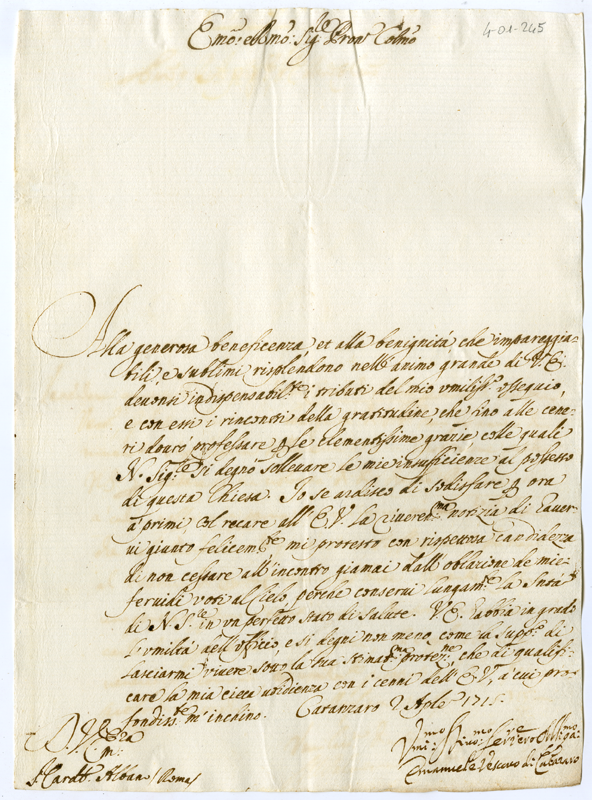 Emo: e Rmo: Sigre Pron Colmo
401-245
Alla generosa beneficenza et alla benignità che impareggia-
bili, e sublimi risplendono nell'animo grande di V.E.
devonsi indispensabilte i tributi del mio umiliss° ossequio,
e con essi i rincontri della gratitudine, che sino alle cene-
ri dovrò professare p le clementissime grazie, colle quali
N. Sigre si degnò sollevare le mie insufficienze al possesso
di questa Chiesa. Io se ardisco di sodisfare p ora
a' primi col recare all'E.V. la riverentma notizia di esser
vi giunto felicemte, mi protesto con rispettosa candidezza
di non cessare all'incontro giamai dall'oblazione de miei
fervidi voti al Cielo, perche conservi lungamte la Santà
di N. Sre in un perfetto stato di salute. V.E. habbia in grado
l'umiltà dell'officio, e si degni non meno, come la suppco di
lasciarmi vivere sotto la sua stimatma protezne, che di qualifi-
care la mia cieca ubidienza con i cenni dell'E.V. a cui pro-
fondisste m'inchino. Catanzaro Aple 171
D.V. Em:
Sr Cardle Albani Roma
Umo: Divmo: Servre Obligmo:
Emanuele Vescovo di Catanzaro